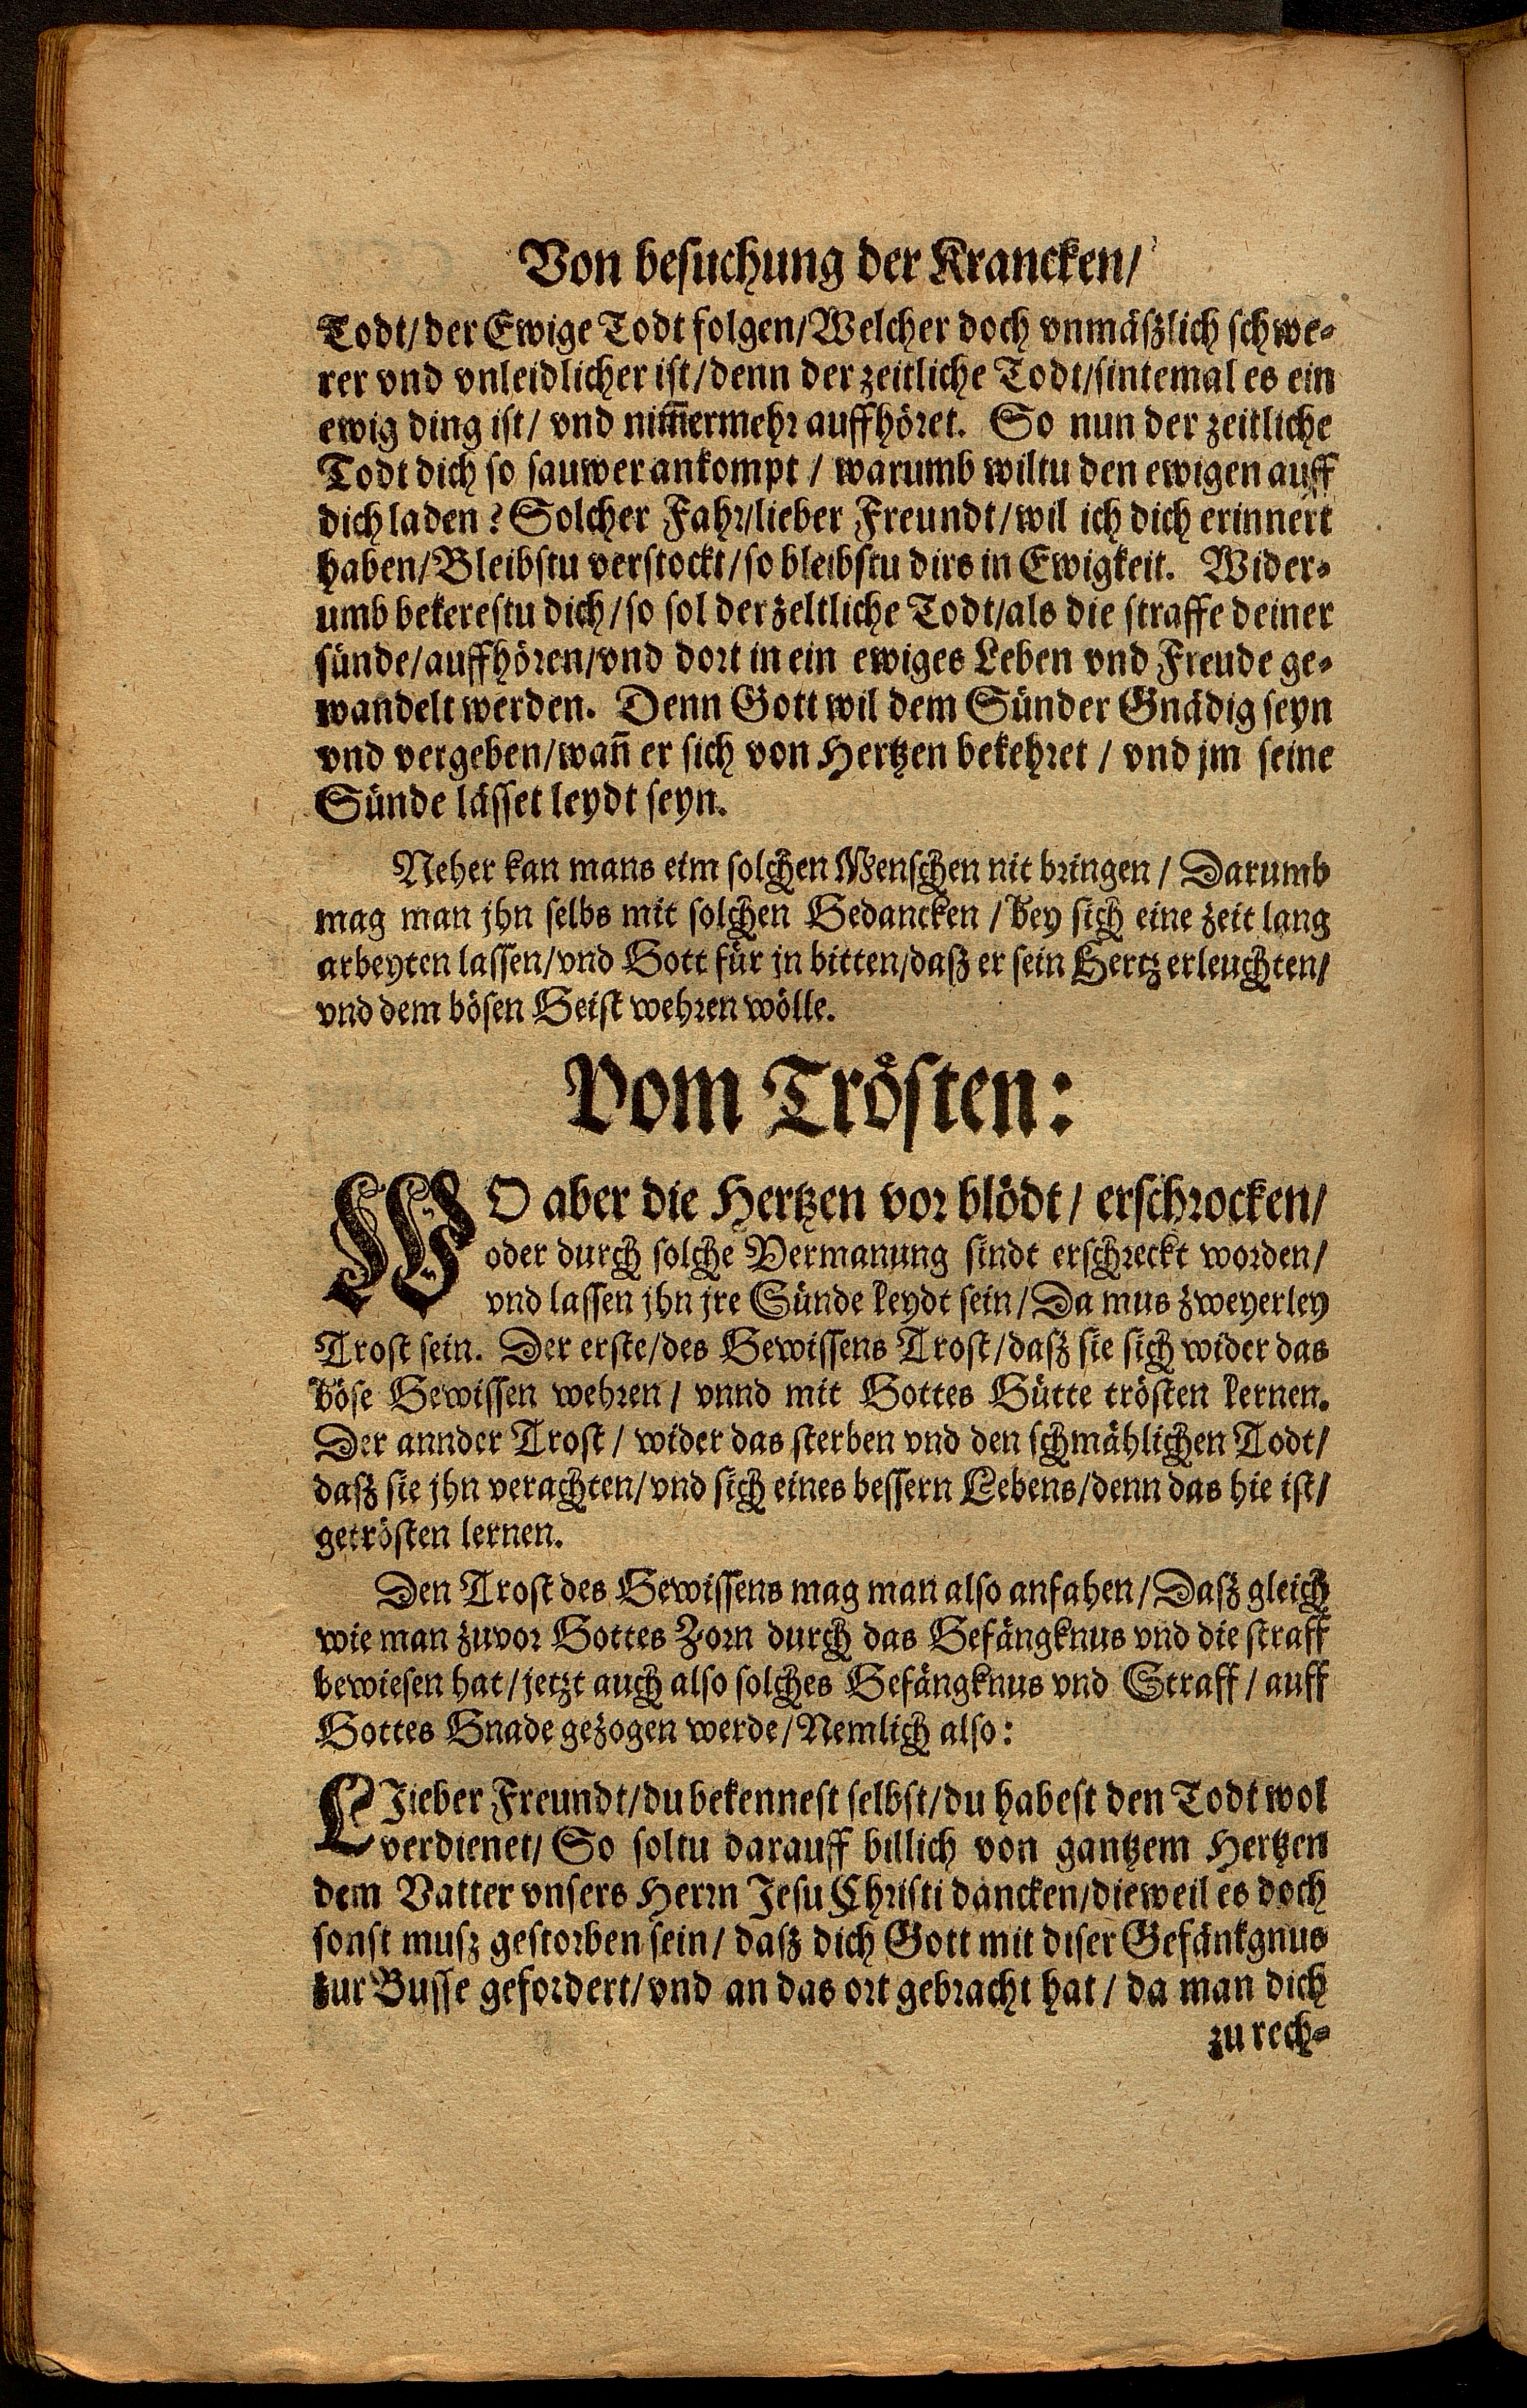 Von besuchung der Krancken/
Todt/ der Ewige Todt folgen/ Welcher doch vnmäßlich schwe-
rer vnd vnleidlicher ist/ denn der zeitliche Todt/ sintemal es ein
ewig ding ist/ vnd nim̃ermehr auffhöret. So nun der zeitliche
Todt dich so sauwer ankompt/ warumb wiltu den ewigen auff
dich laden? Solcher Fahr/ lieber Freundt/ wil ich dich erinnert
haben/ Bleibstu verstockt/ so bleibstu dirs in Ewigkeit. Wider-
umb bekerestu dich/ so sol der zeltliche Todt/ als die straffe deiner
sünde/ auffhören/ vnd dort in ein ewiges Leben vnd Freude ge-
wandelt werden. Denn Gott wil dem Sünder Gnädig seyn
vnd vergeben/ wañ er sich von Hertzen bekehret/ vnd jm seine
Sünde lässet leydt seyn.
Neher kan mans eim solchen Menschen nit bringen/ Darumb
mag man jhn selbs mit solchen Gedancken/ bey sich eine zeit lang
arbeyten lassen/ vnd Gott für jn bitten/ daß er sein Hertz erleuchten/
vnd dem bösen Geist wehren wölle.
Vom Trösten:
WO aber die Hertzen vor blödt/ erschrocken/
oder durch solche Vermanung sindt erschreckt worden/
vnd lassen jhn jre Sünde leydt sein/ Da mus zweyerley
Trost sein. Der erste/ des Gewissens Trost/ daß sie sich wider das
böse Gewissen wehren/ vnnd mit Gottes Gütte trösten lernen.
Der annder Trost/ wider das sterben vnd den schmählichen Todt/
daß sie jhn verachten/ vnd sich eines bessern Lebens/ denn das hie ist/
getrösten lernen.
Den Trost des Gewissens mag man also anfahen/ Daß gleich
wie man zuvor Gottes Zorn durch das Gefängknus vnd die straff
bewiesen hat/ jetzt auch also solches Gefängknus vnd Straff/ auff
Gottes Gnade gezogen werde/ Nemlich also:
LIieber Freundt/ du bekennest selbst/ du habest den Todt wol
verdienet/ So soltu darauff billich von gantzem Hertzen
dem Vatter vnsers Herrn Jesu Christi dancken/ dieweil es doch
sonst muß gestorben sein/ daß dich Gott mit diser Gefänkgnus
zur Busse gefordert/ vnd an das ort gebracht hat/ da man dich
zu rech-